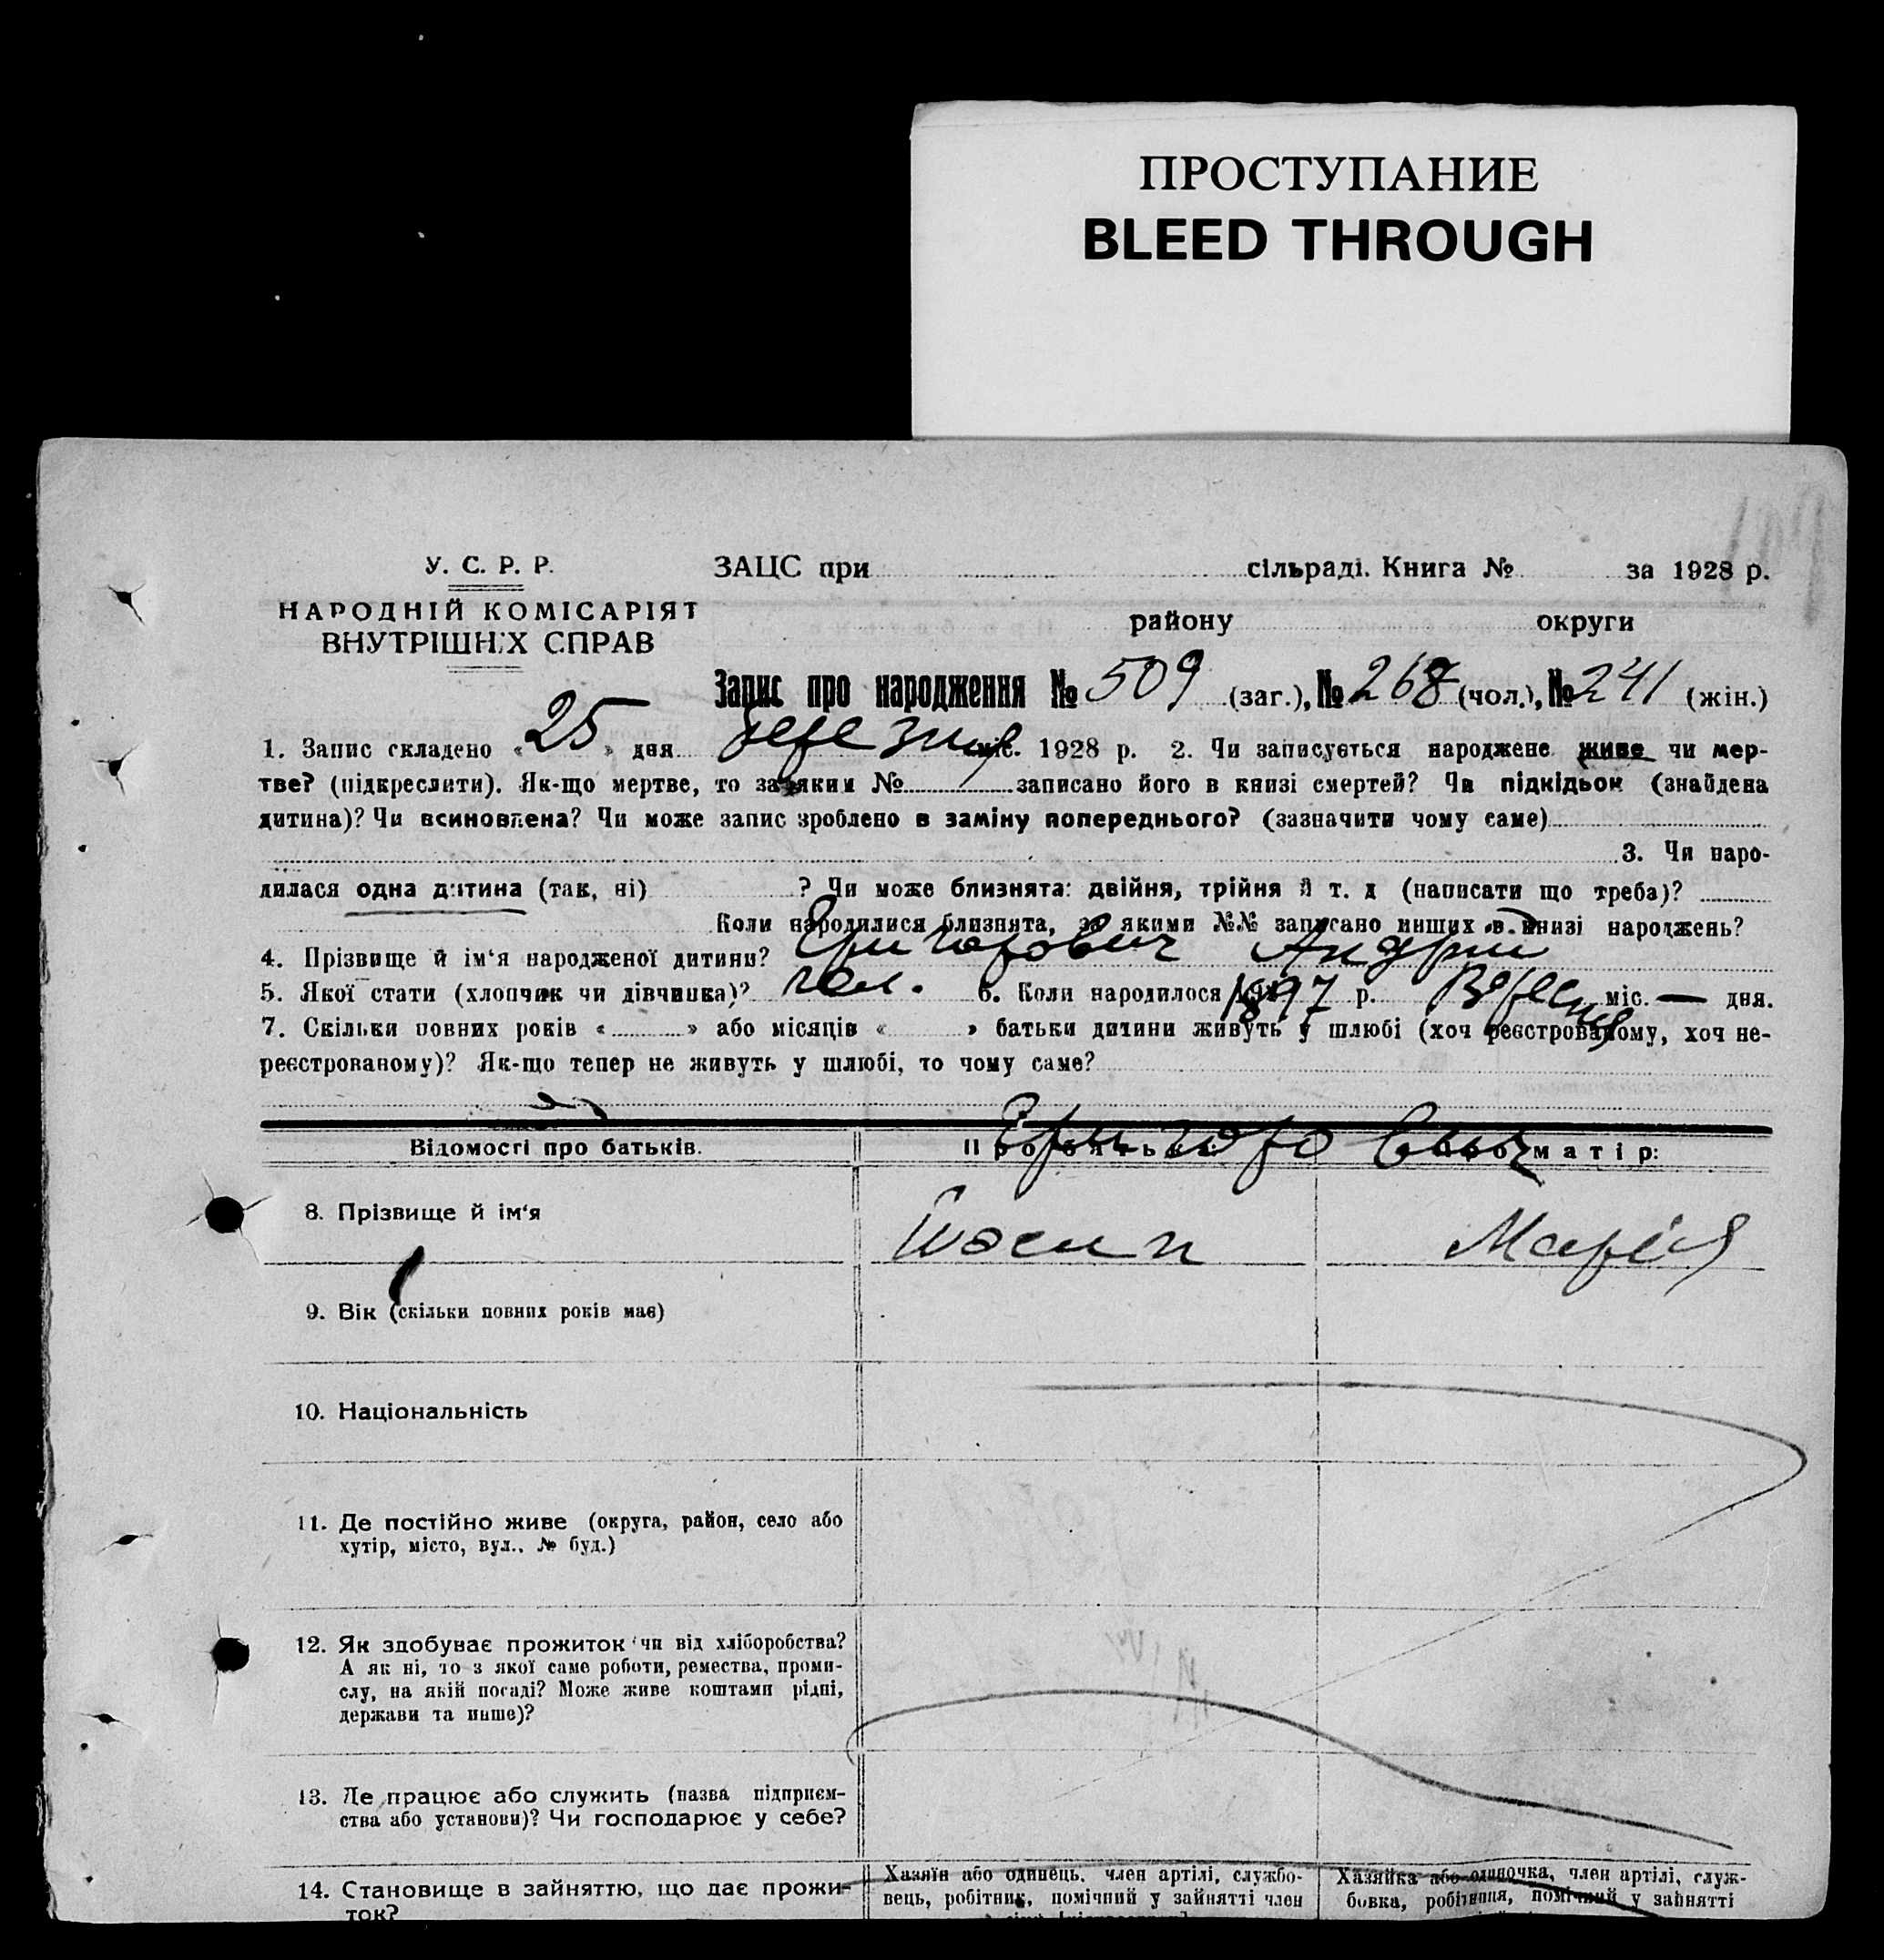 ПРОСТУПАНИЕ
BLEED THROUGH
У. С. Р. Р.
НАРОДНІЙ КОМІСАРІЯТ
ВНУТРІШНІХ СПРАВ
ЗАЦС при сільраді. Книга № за 1928 р.
району округи
Запис про народження № 509 (заг.), № 268 (чол.), № 241 (жін.)
1. Запис складено « 25 » дня березня міс. 1928 р. 2. Чи записується народжене живе чи мер-
тве? (підкреслити). Як-що мертве, то за яким № записано його в книзі смертей? Чи підкідьок (знайдена
дитина)? Чи всиновлена? Чи може запис зроблено в заміну попереднього? (зазначити чому саме)
3. Чи наро-
дилася одна дитина (так, ні) ? Чи може близнята: двійня, трійня й т. д (написати що треба)?
Коли народилися близнята, за якими №№ записано инших в книзі народжень?
4. Прізвище й ім‘я народженої дитини? Григорович Андрій
5. Якої стати (хлопчик чи дівчинка)? чол. 6. Коли народилося 1897 р. Вересня міс. — дня.
7. Скільки повних років « » або місяців « » батьки дитини живуть у шлюбі (хоч реєстрованому, хоч не-
реєстрованому)? Як-що тепер не живуть у шлюбі, то чому саме?
Відомості про батьків. Про батька: Про матір:
8. Прізвище й ім‘я Йосип Марія
9. Вік (скільки повних років має)
10. Національність
11. Де постійно живе (округа, район, село або
хутір, місто, вул., № буд.)
12. Як здобуває прожиток чи від хліборобства?
А як ні, то з якої саме роботи, ремества, проми-
слу, на якій посаді? Може живе коштами рідні,
держави та инше)?
13. Де працює або служить (назва підприєм-
ства або установи)? Чи господарює у себе?
14. Становище в зайняттю, що дає прожи-
ток?
Хазяїн або одинець, член артілі, службо-
вець, робітник, помічний у зайнятті член
Хазяйка або одиночка, член артілі, служ-
бовка, робітниця, помічний у зайнятті